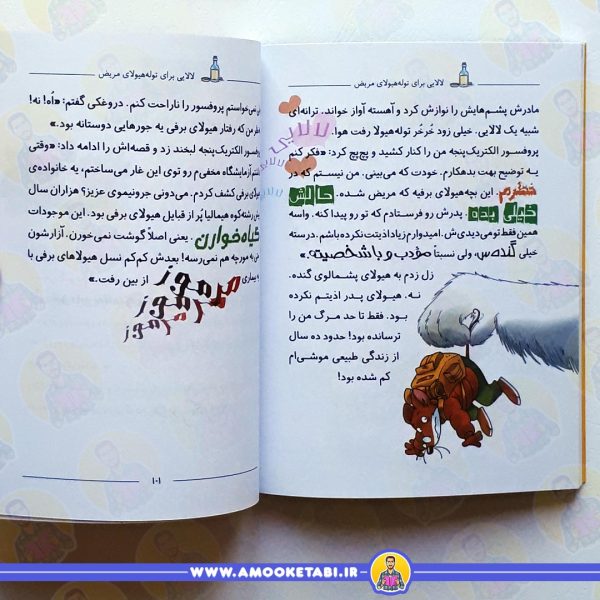 لالایی برای توله‌هیولای مریض
مادرش پشم‌هایش را نوازش کرد و آهسته آواز خواند. ترانه‌ای
شبیه یک لالایی. خیلی زود خُرخُر توله‌هیولا رفت هوا.
لالایی
پروفسور الکتریک‌پنجه من را کنار کشید و پچ‌پچ کرد: «فکر کنم
یه توضیح بهت بدهکارم. خودت که می‌بینی. من نیستم که در
خطرم. این بچه‌هیولای برفیه که مریض شده. حالش
خیلی بده. پدرش رو فرستادم که تو رو پیدا کنه. واسه
همین فقط تو می‌دیدی‌ش. امیدوارم زیاد اذیتت نکرده باشه. درسته
خیلی گنده‌س، ولی نسبتاً مؤدب و باشخصیته.»
زل زدم به هیولای پشمالوی گنده.
نه. هیولای پدر اذیتم نکرده
بود. فقط تا حد مرگ من را
ترسانده بود! حدود ده سال
از زندگی طبیعی موشی‌ام
کم شده بود!
لالایی برای توله‌هیولای مریض
نمی‌خواستم پروفسور را ناراحت کنم. دروغکی گفتم: «اُه! نه!
من که رفتار هیولای برفی یه جورهایی دوستانه بود.»
پروفسور الکتریک‌پنجه لبخند زد و قصه‌اش را ادامه داد: «وقتی
آزمایشگاه مخفی‌م رو توی این غار می‌ساختم، یه خانواده‌ی
برفی کشف کردم. می‌دونی جرونیموی عزیز؟ هزاران سال
رشته‌کوه هیمالیا پُر از قبایل هیولای برفی بود. این موجودات
گیاه‌خوارن. یعنی اصلاً گوشت نمی‌خورن. آزارشون
به مورچه هم نمی‌رسه! بعدش کم‌کم نسل هیولاهای برفی با
بیماری مرموز از بین رفت.»
مرموز
مرموز
۱۰۱
WWW.AMOOKETABI.IR